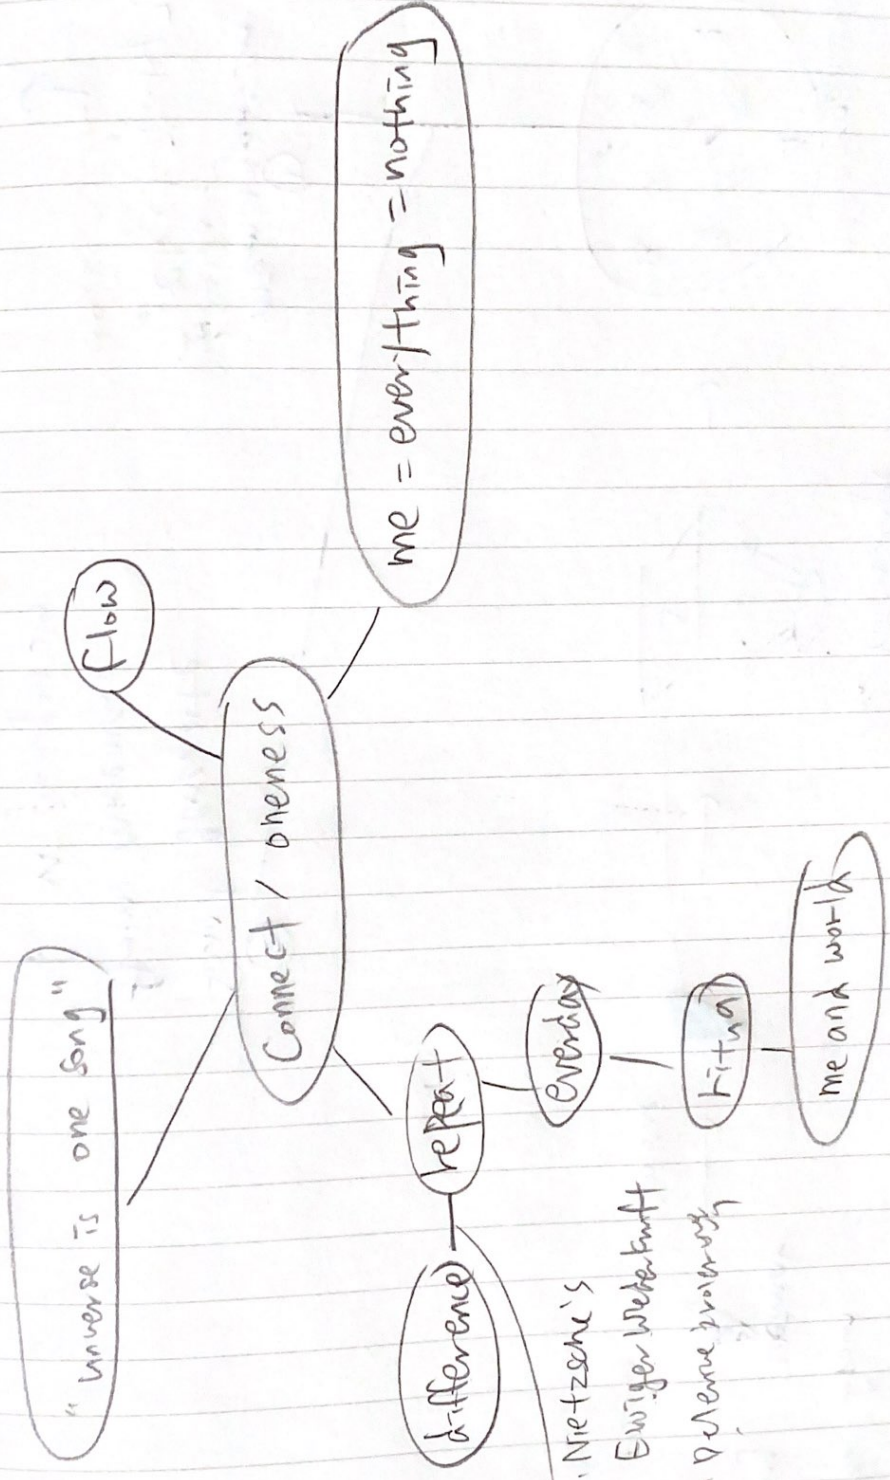 "universe is one song"
flow
Connect / oneness
me = everything = nothing
repeat
difference
everday
ritual
me and world
. Nietzsche's
Ewiger Wiederkunft